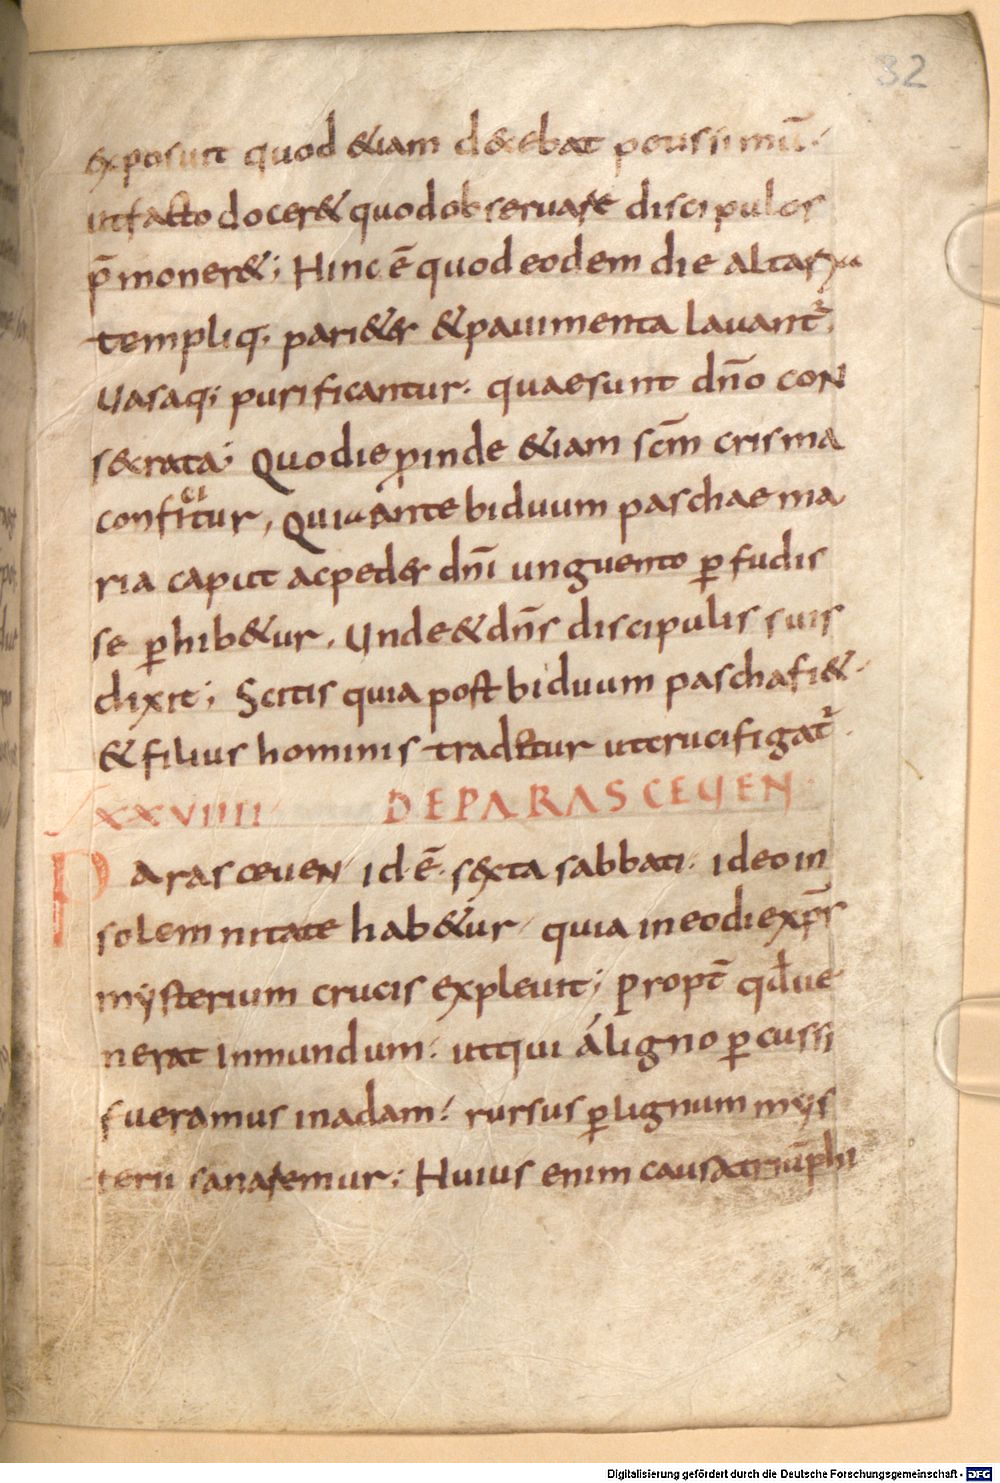 32
exposuit quod &iam dec&ebat potissimū.
utfacto docer& quodobseruare discipulos
p̄moner&; Hinc ē quod eodem die altaria
templiq; pari&er &pauimenta lauant᷑.
Uasaq; purificantur. quaesunt dn̄o con
secrata; Quo die proinde &iam sc̄m crisma
conficitur, Quia ante biduum paschae ma
ria caput acpedes dn̄i unguento ꝑfudis
se ꝑhib&ur. Unde & dn̄s discipulis suis
dixit; Scitis quia post biduum pascha fi&.
& filius hominis tradetur utcrucifigat᷑.
XXVIIII DE PARASCEUEN
Parasceuen id ē sexta sabbati. ideo in
solemnitate hab&ur quia in eo die xp̄s
mysterium crucis expleuit; Propt̄ qđ ue
nerat inmundum. utqui á ligno ꝑcussi
fueramus inadam. rursus ꝑ lignum mys
terii sanaremur; Huius enim causa triūphi
Digitalisierung gefördert durch die Deutsche Forschungsgemeinschaft - DFG